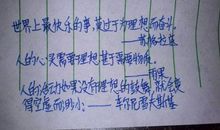 世界上最快乐的事,莫过于为理想而奋斗。
——苏格拉底
人的心只需要理想甚于需要物质。
——雨果
人的活动如果没有理想的鼓舞,就会变
得空虚而渺小。——车尔尼雪夫斯基